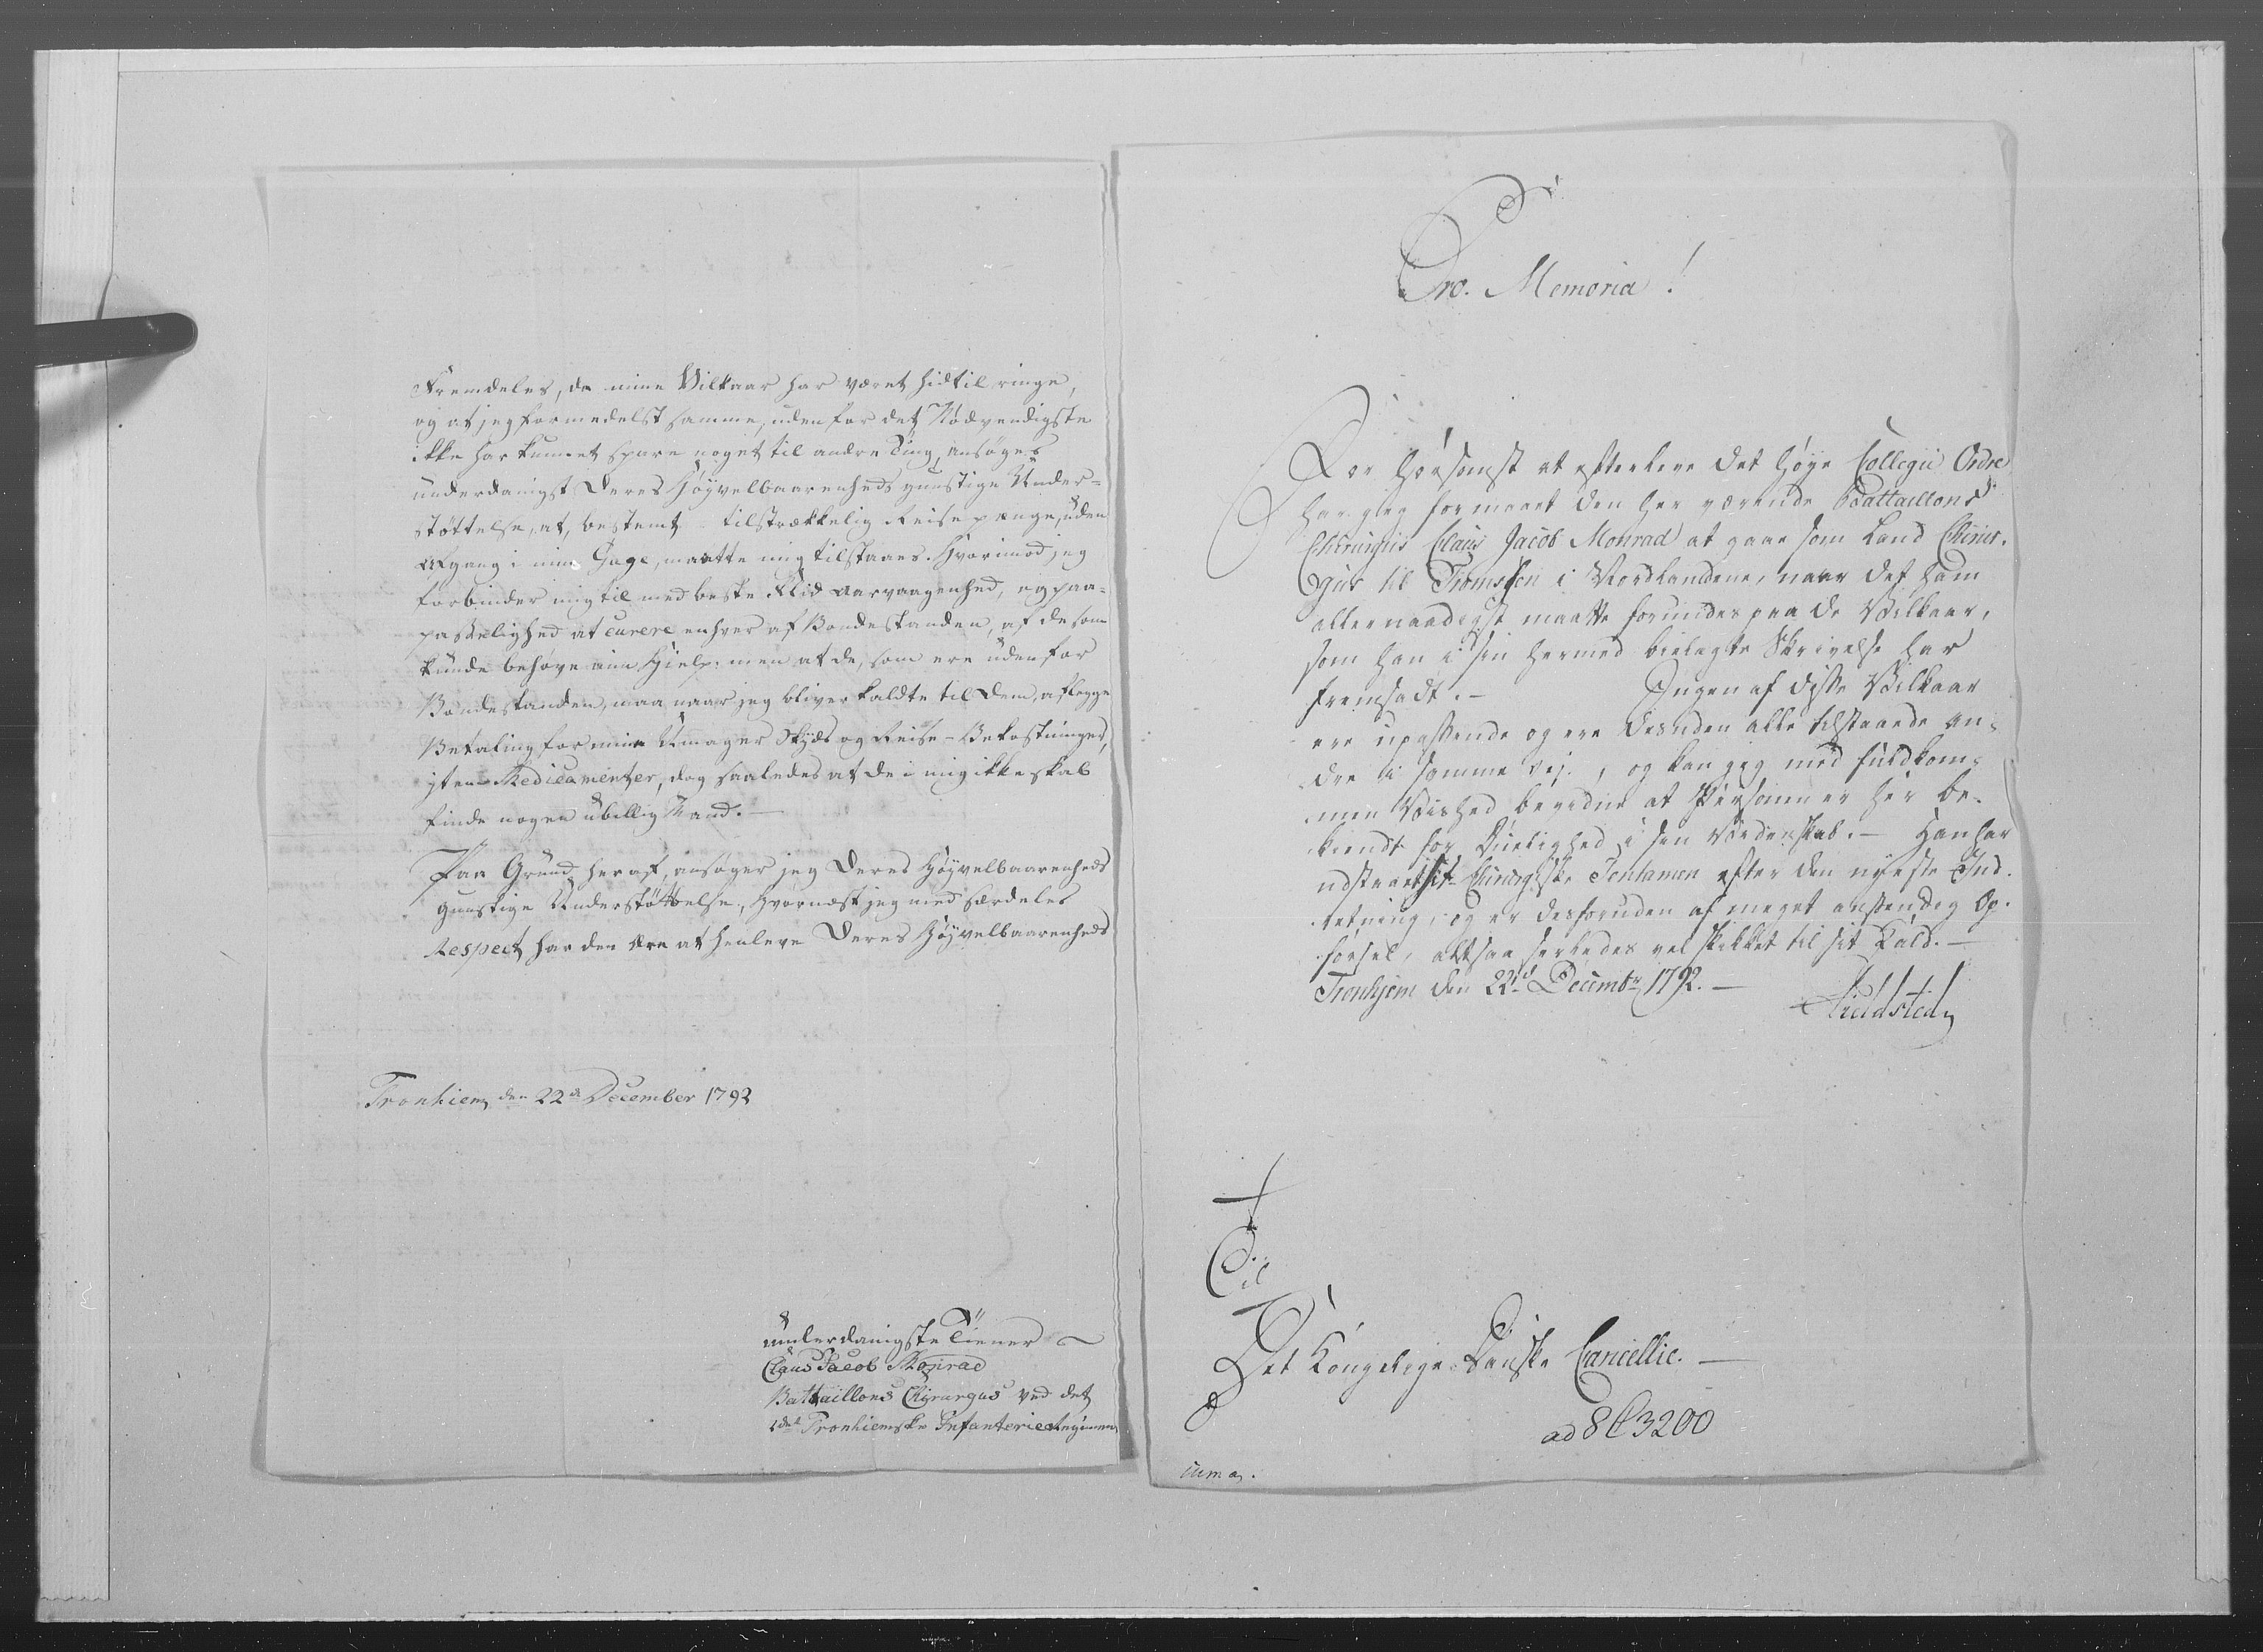 Fremdeles, da mine Vilkaar har været hidtil ringe,
og at jeg formedelst samme, uden for det Nødvendigste
ikke har kunnet spare noget til andre Ting, ansøges
underdanigst Deres Høyvelbaarenheds gunstige Under-
støttelse, at, bestemt tilstrækkelig Reise penge, uden
Afgang i min Gage, maatte mig tilstaaes. Hvorimod jeg
forbinder mig til med beste Flid aarvaagenhed, og paa-
passelighed at curere enhver af Bondestanden, af de som
kunde behøve min Hielp: men at de, som ere uden for
Bondestanden, maa naar jeg bliver kaldte til dem, aflegge
Betaling for min Umager Skyds og Reise-Bekostninger,
iten Medicamenter, dog saaledes at de i mig ikke skal
finde nogen ubillig Mand. —
Paa Grund heraf, ansøger jeg Deres Høyvelbaarenheds
gunstige Understøttelse, hvornæst jeg med særdeles
Respect har den Ære at henleve Deres Høyvelbaarenheds
Tronhiem den 22de December 1792
underdanigste Tiener
Claus Jacob Monrad
Battaillons Chirurgus ved det
Tronhiemske Infanterie Regiment
Pro. Memoria!
For hørsomst at efterleve det høye Collegii Ordre
har jeg formaaet den her værende Battaillons
Chirurgus Claus Jacob Monrad at gaae som Land Chirur-
gus til Tromsøen i Nordlandene, naar det ham
allernaadigst maatte forundes paa de Vilkaar,
som han i sin hermed bielagte Skrivelse har
fremsadt. — Ingen af disse Vilkaar
ere upassende og ere desuden alle tilstaaede an-
dre i samme vej, og kan jeg med fuldkom-
men Vished bevidne at Personen er her be-
kiendt for Duelighed i sin Videnskab. — Han har
udstaaet sit Chirurgiske Tentamen efter den nyeste Ind-
retning, og er desforuden af meget anstændig Op-
førsel, altsaa særdeles vel skikket til sit Kald. —
Tronhjem den 22d Decembr 1792. —
Fieldsted
Til
Det Kongelige Danske Cancellie. —
ad 8 C 3200